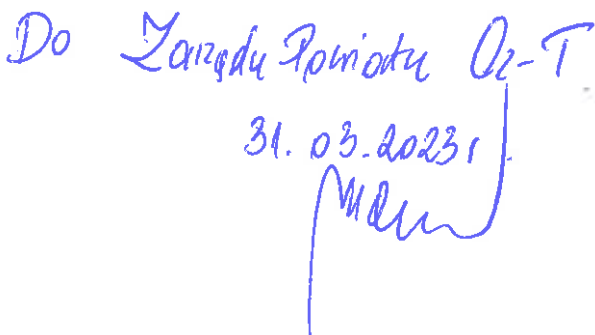 Do Zarządu Powiatu Oz-T
31.03.2023r.